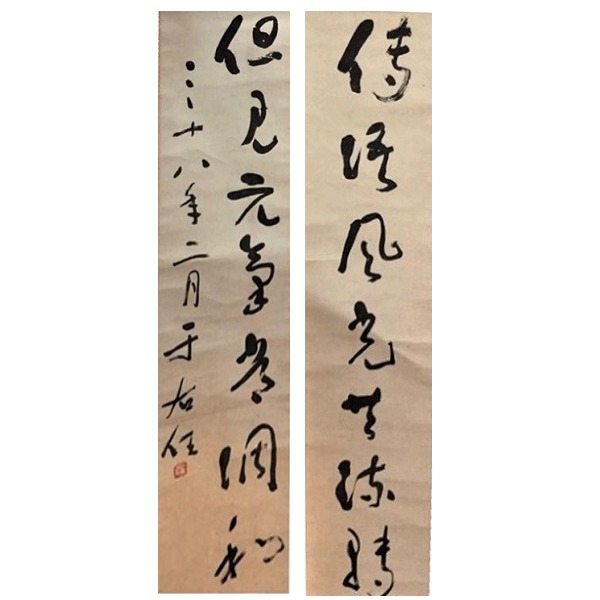 傳語風光共流轉
但見元氣常調和
三十八年二月于右任